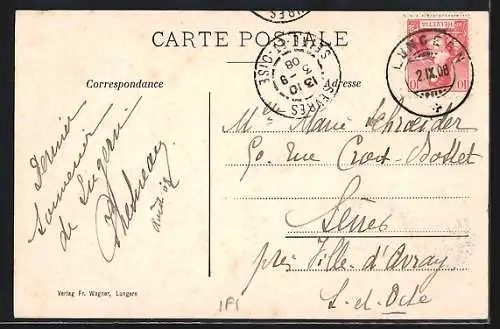 CARTE POSTALE
Correspondance
Adresse
HELVETIA
10 10
LUNGERN
2 IX 08
SÈVRES
Sne ET OISE
13 10
3 - 9
08
Dernier
souvenir
de Lugern
août 08
Mlle Marie Schroeder
50. Rue Croix-Bosset
Sèvres
près Ville d'Avray
S-et-Oise
Verlag Fr. Wagner, Lungern
1F1